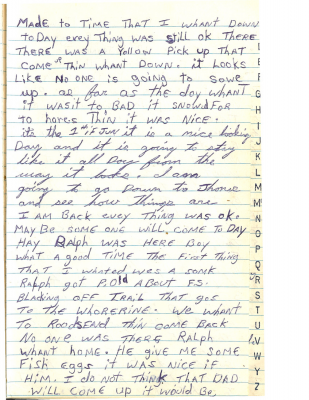 MADE to TIME THAT I WHANT DOWN
toDAy every THing WAS still ok THere
THere WAS A YelloW Pick up THAT
COME THin WHANT DOWN. it Looks
Like No one is going to SoWe
up. as far as the day WHANT
it was it to BAD it SNOWd FOR
to hores THin it WAS NICE.
it's the 1st of JUN it is a nice looking
Day and it is going to stay
like it all Day from the
way it looks. I am
going to go Down to
and see how things are
I AM BACK evey THing WAS OK.
MAY Be SOME ONe will COME TO DAY
HAY RALPH WAS HERE BOY
WHAT A good TIME THE First THing
THAT I WAS A SMK
Ralph got P.Old ABOUT FS.
BlAcKing OFF TRAIL THAT goS
TO THE WHORERINE. We WHANT
To RoodSEND THin COME BACK
No one WAS THERE RALPH
WHANT HOME. HE GIVE ME SOME
FisH eggs it WAS NICE iF
HiM. I do NOT THinK THAT DAD
WILL COME UP it WOULD Be
G
H
I
J
K
L
M
N
O
P
Q
R
S
T
U
V
W
Y
Z